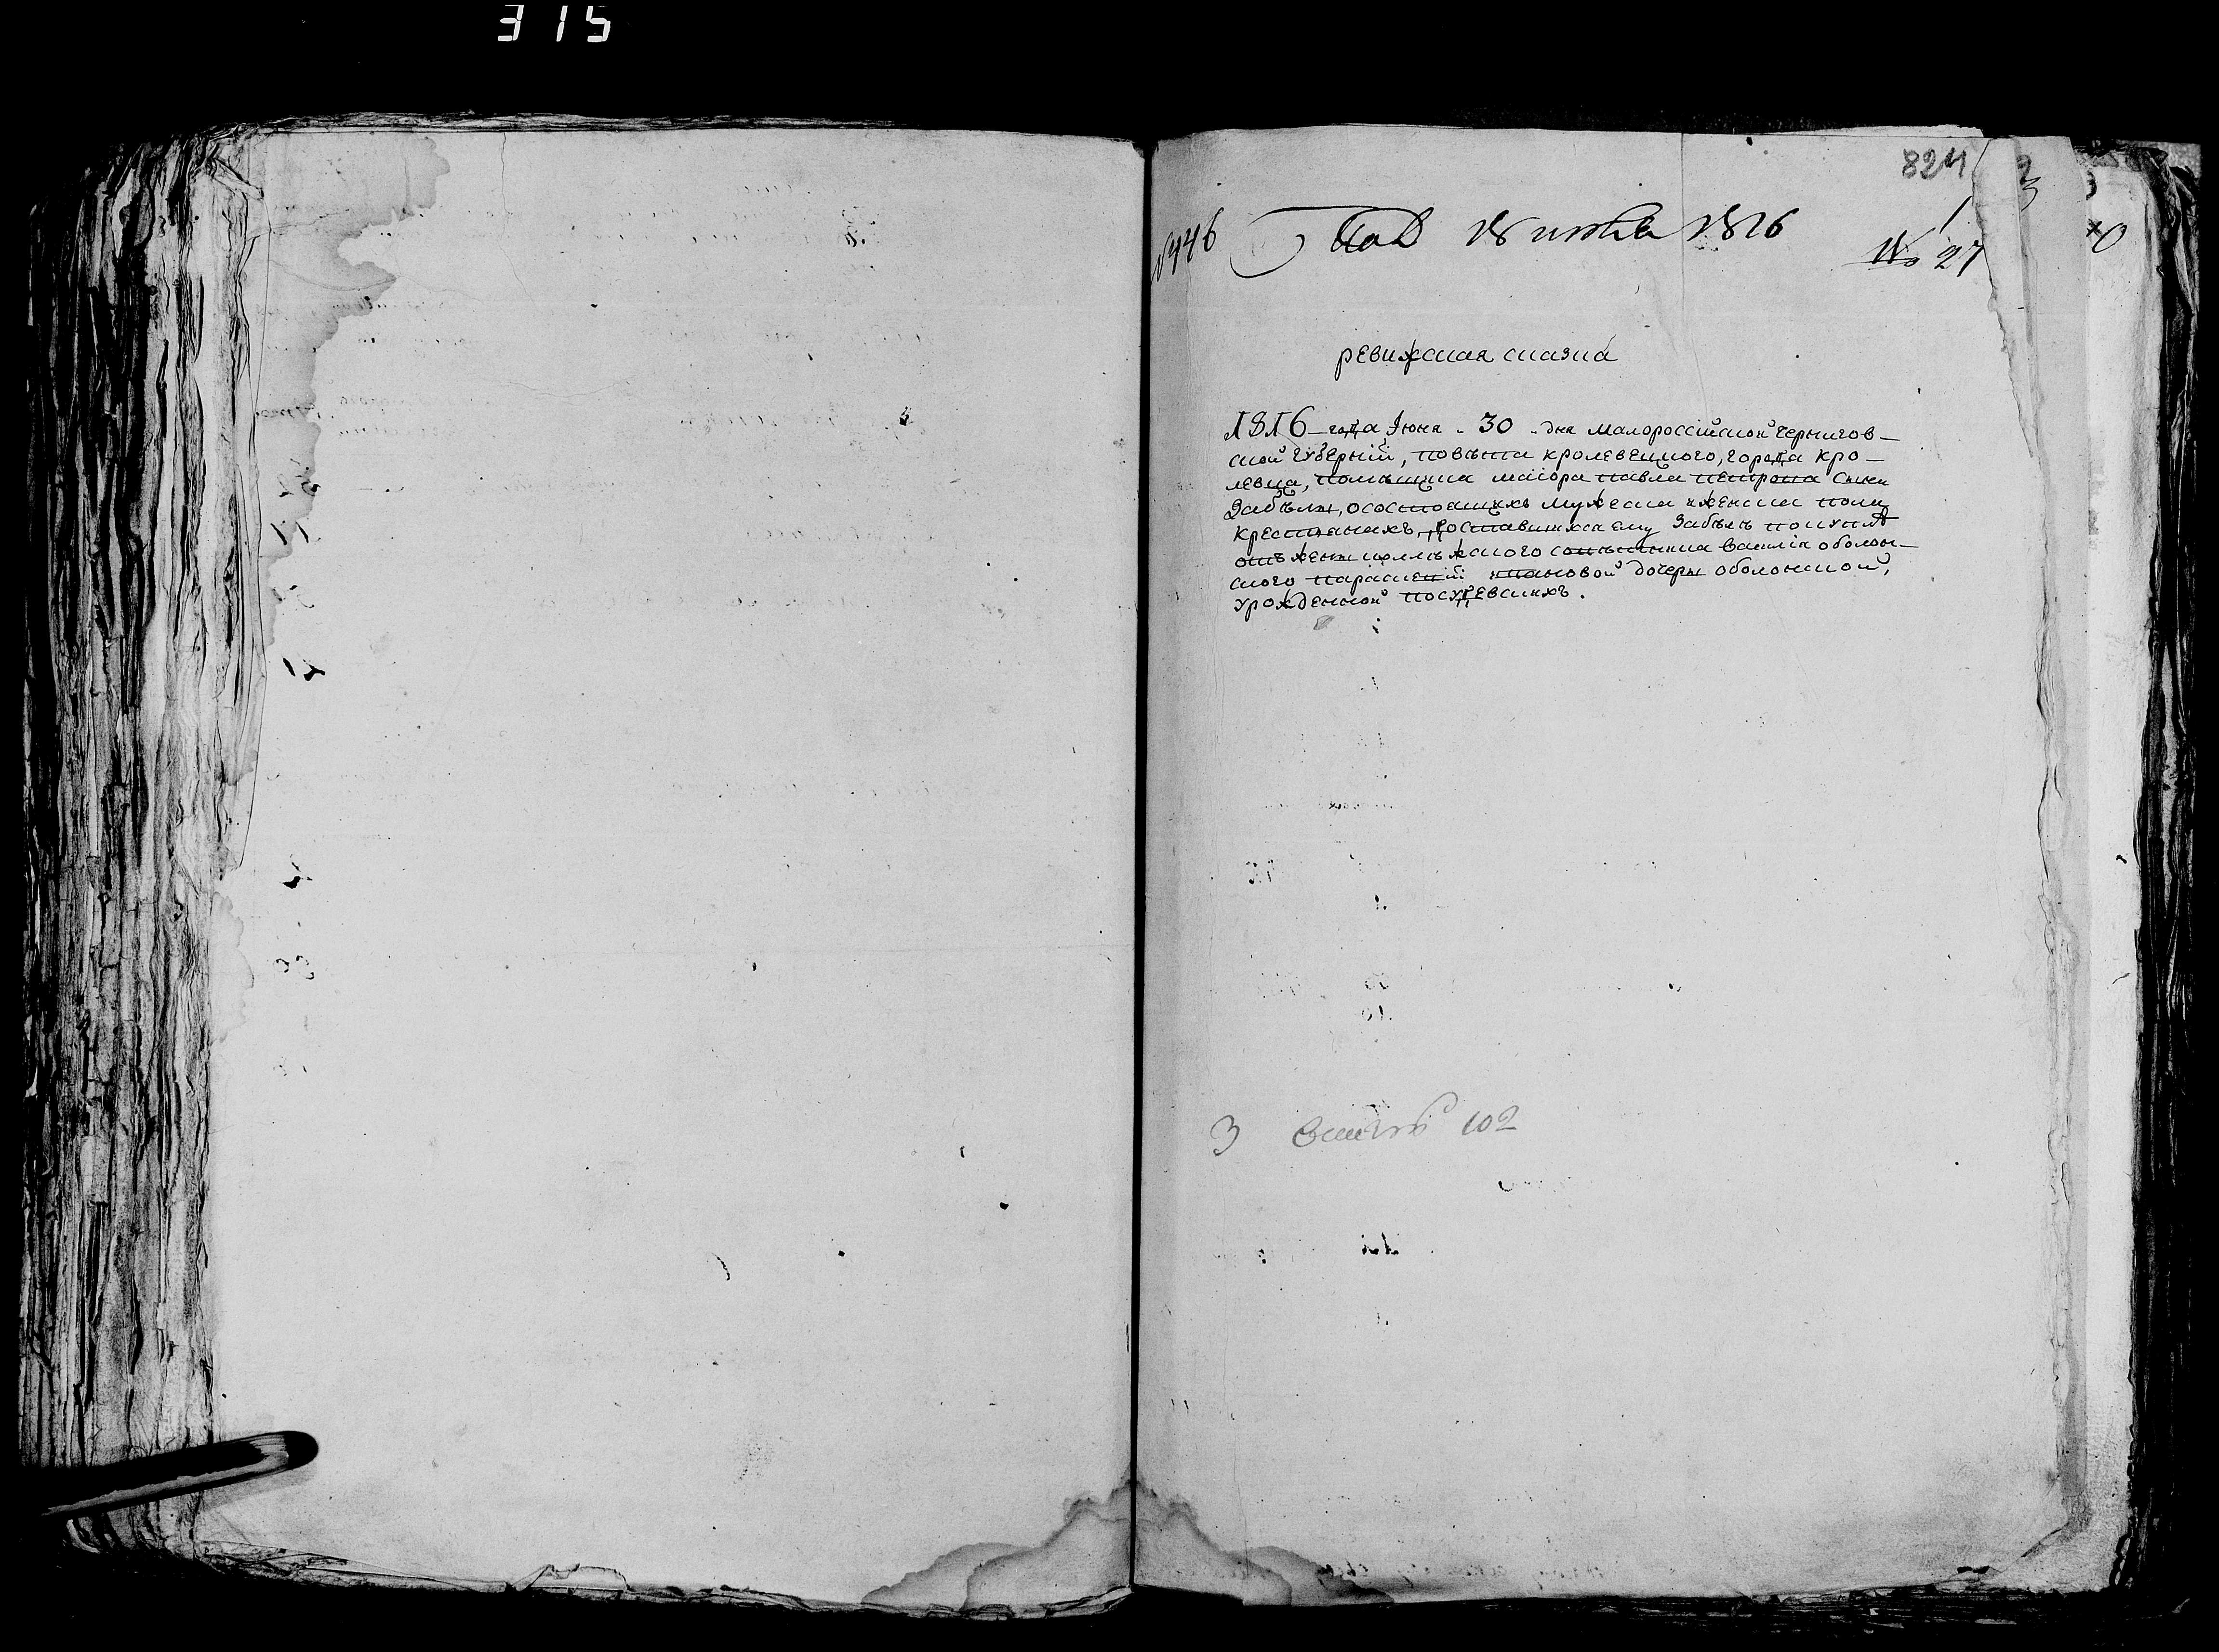 315
824
№446 Под 18 июля 1816
№ 27
ревижская сказка
1816 года Июня 30 дня Малороссійской Чернигов–
ской Губерній, повѣта кролевецкого, города Кро–
левца, помѣщика маіора павла петрова сына
Забѣлы, осостоящихъ мужеска иженска пола
крестьянахъ, доставшихся ему Забѣлѣ покупкѣ
отъ жены колежского совѣтника василія оболон–
ского параскевій дочеры оболонской,
урожденной посудевскихъ.
3 102